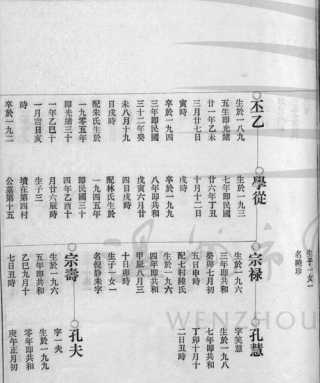 生子一女一
名曉珍
丕乙
生於一八九
五生即光緒
廿一年乙未
三月廿七日
寅時
卒於一九四
三年即民國
三十二年癸
未八月十九
日戌時
配朱氏生於
一九〇五年
即光緒三十
一年乙巳十
一月吉日亥
時
卒於一九二
學從
生於一九三
七年即民國
廿六年丁丑
十月十二日
戌時
卒於一九九
八年即共和
戊寅六月廿
四日戌時
配林氏生於
一九四五年
即民國三十
四年乙酉十
月廿六辰時
生子三
墳在第四村
公墓第十五
宗祿
生於一九六
三年即共和
癸卯七月初
五日申時
配七村陸氏
生於一九六
四年即共和
甲辰八月三
十日卯時
生子一女一
名倪静未字
宗壽
生於一九六
五年即共和
乙巳九月十
七日丑時
孔慧
字笑慧
生於一九八
七年即共和
丁卯十月十
二日丑時
孔夫
字一夫
生於一九九
零年即共和
庚午正月初
WENZHOU